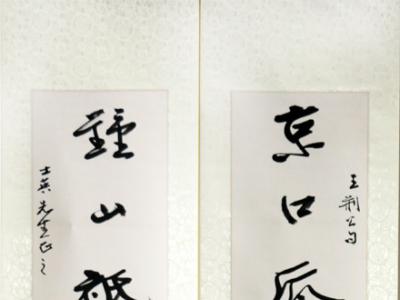 王荆公句
京口瓜
鍾山祗
士英先生正之